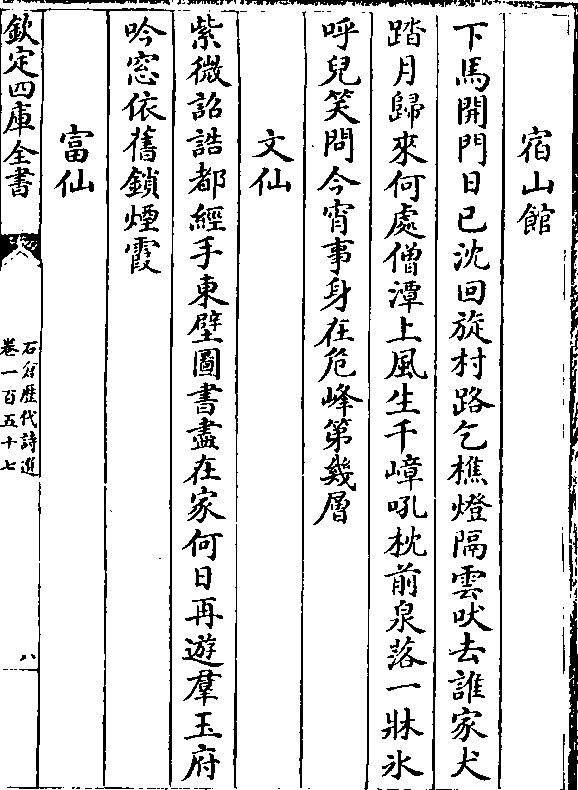 宿山館
下馬開門日已沈回旋村路乞樵燈隔雲吠去誰家犬
踏月歸來何處僧潭上風生千嶂吼枕前泉落一牀氷
呼兒笑問今宵事身在危峰第幾層
文仙
紫微詔誥都經手東壁圖書盡在家何日再遊羣玉府
吟窓依舊鎖煙霞
富仙
欽定四庫全書
石倉歴代詩選
卷一百五十七
八